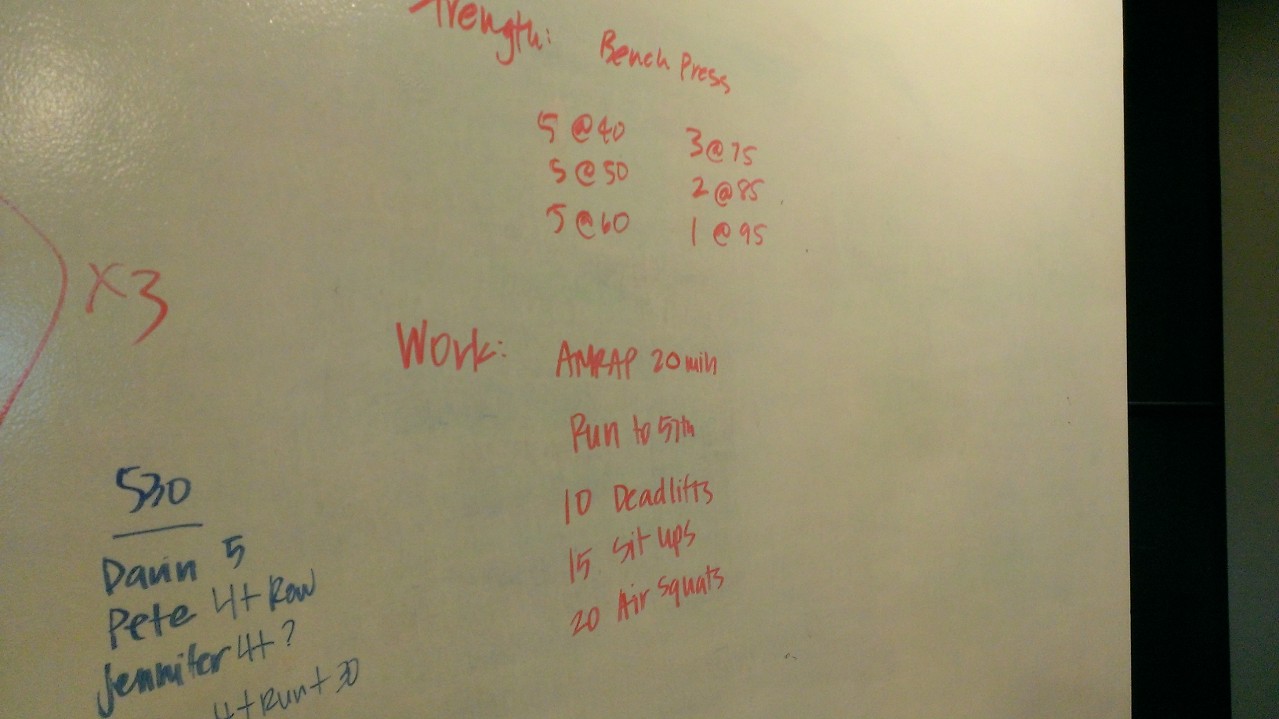 trength: Bench Press
5 @40 3@75
5 @50 2 @85
5 @60 1 @95
x3
Work: AMRAP 20 min
Run to 57th
10 Deadlifts
15 sit ups
20 Air squats
530
5
Pete 4+ Row
Jennifer 4+ ?
4+Run+30